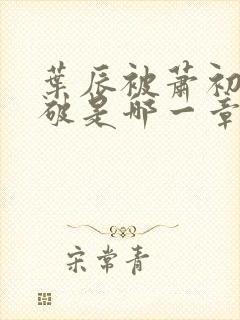 葉辰被蕭初
破是哪一章
宋常青